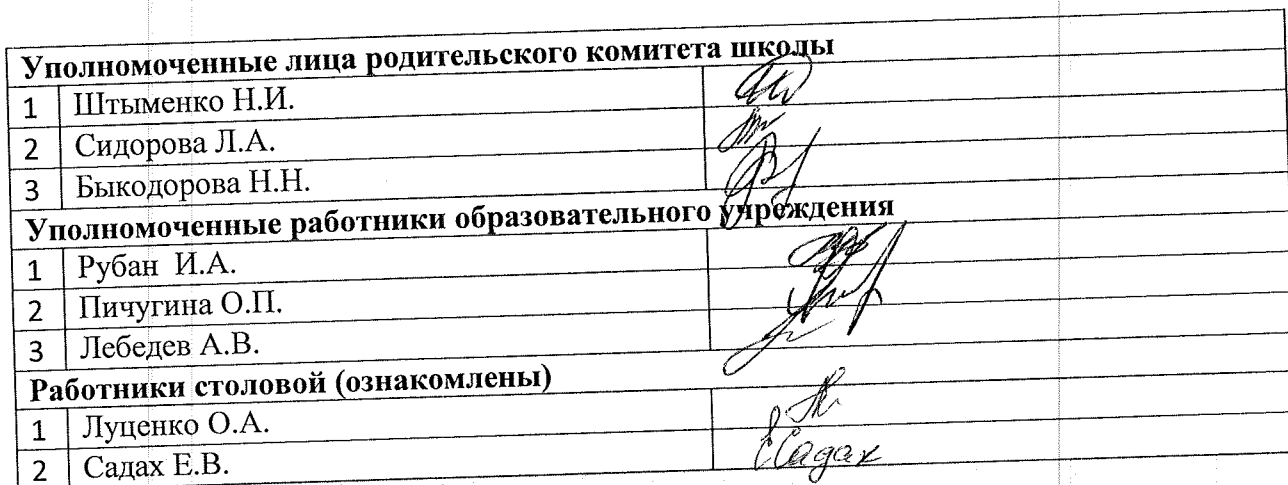 Уполномоченные лица родительского комитета школы
1 Штыменко Н.И.
2 Сидорова Л.А.
3 Быкодорова Н.Н.
Уполномоченные работники образовательного учреждения
1 Рубан И.А.
2 Пичугина О.П.
3 Лебедев А.В.
Работники столовой (ознакомлены)
1 Луценко О.А.
2 Садах Е.В. ЕСадах